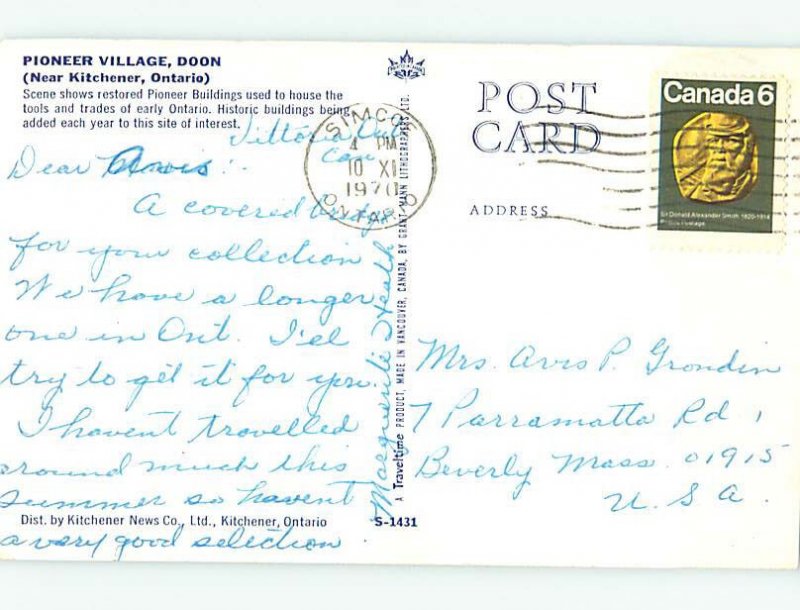 PIONEER VILLAGE, DOON
(Near Kitchener, Ontario)
Scene shows restored Pioneer Buildings used to house the
tools and trades of early Ontario. Historic buildings being
added each year to this site of interest.
Vittoria
Can
Dear Avis:
A covered bridge
for your collection
We have a longer
one in Ont. I'el
try to get it for you.
I havent travelled
around much this
summer so havent
a very good selection
Marguerite Heath
Dist. by Kitchener News Co., Ltd., Kitchener, Ontario
S-1431
A Traveltime PRODUCT, MADE IN VANCOUVER, CANADA, BY GRANT-MANN LITHOGRAPHERS LTD.
POST
CARD
ADDRESS
SIMCOE
4 PM
10 XI
1970
ONTARIO
Canada 6
Sir Donald Alexander Smith, 1820-1914
Mrs. Avis P. Grondin
7 Parramatta Rd,
Beverly Mass. 01915
U.S.A.